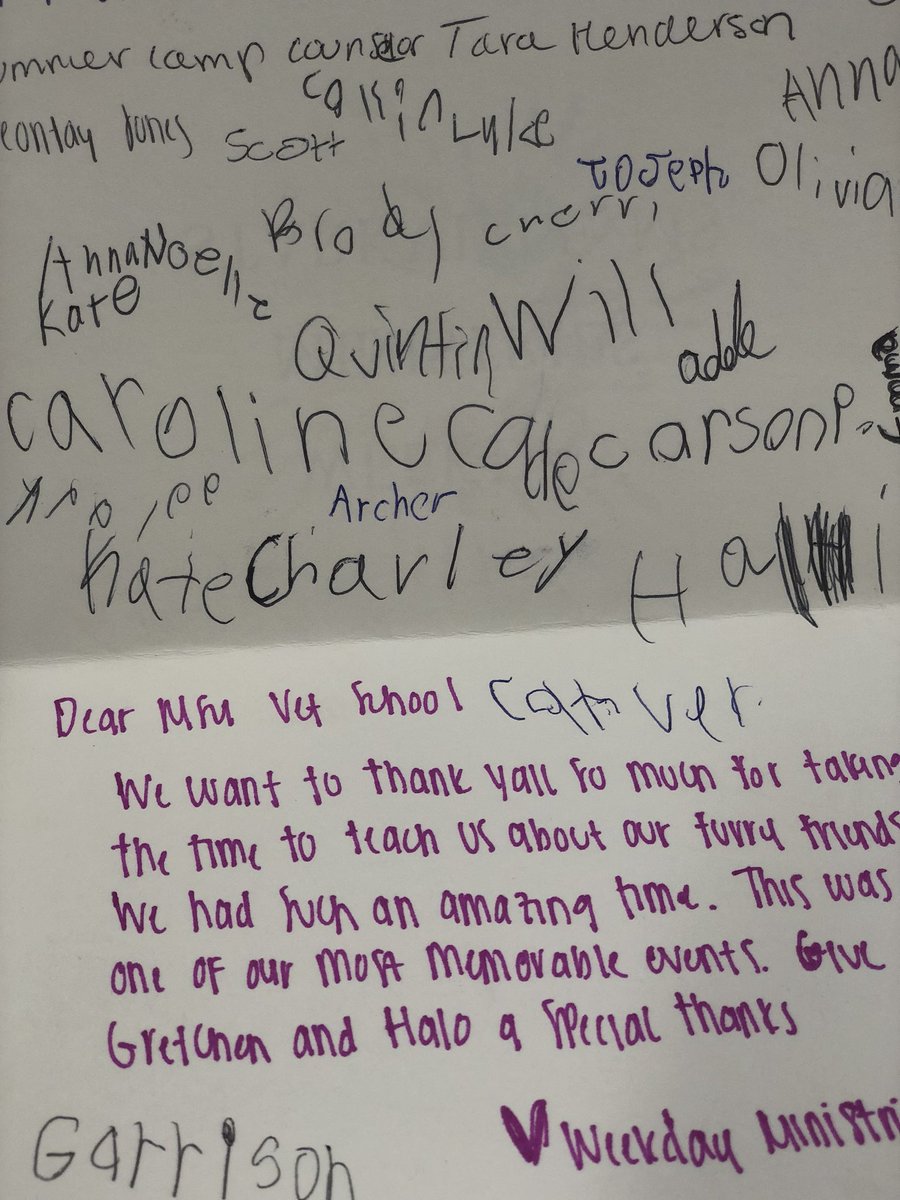 ummer camp counselor Tara Henderson
Anna
eontay Jones Scott Collin Luke
Joseph Olivia
AnnaNoelle Brody
Kate
Quintin Will
adde
caroline Cade carson P.
Archer
Kate Charley
Dear MSU Vet School
We want to thank yall so much for taking
the time to teach us about our furry friends
We had such an amazing time. This was
one of our most memorable events. Give
Gretchen and Halo a special thanks
Garrison
♥ Weekday Ministri